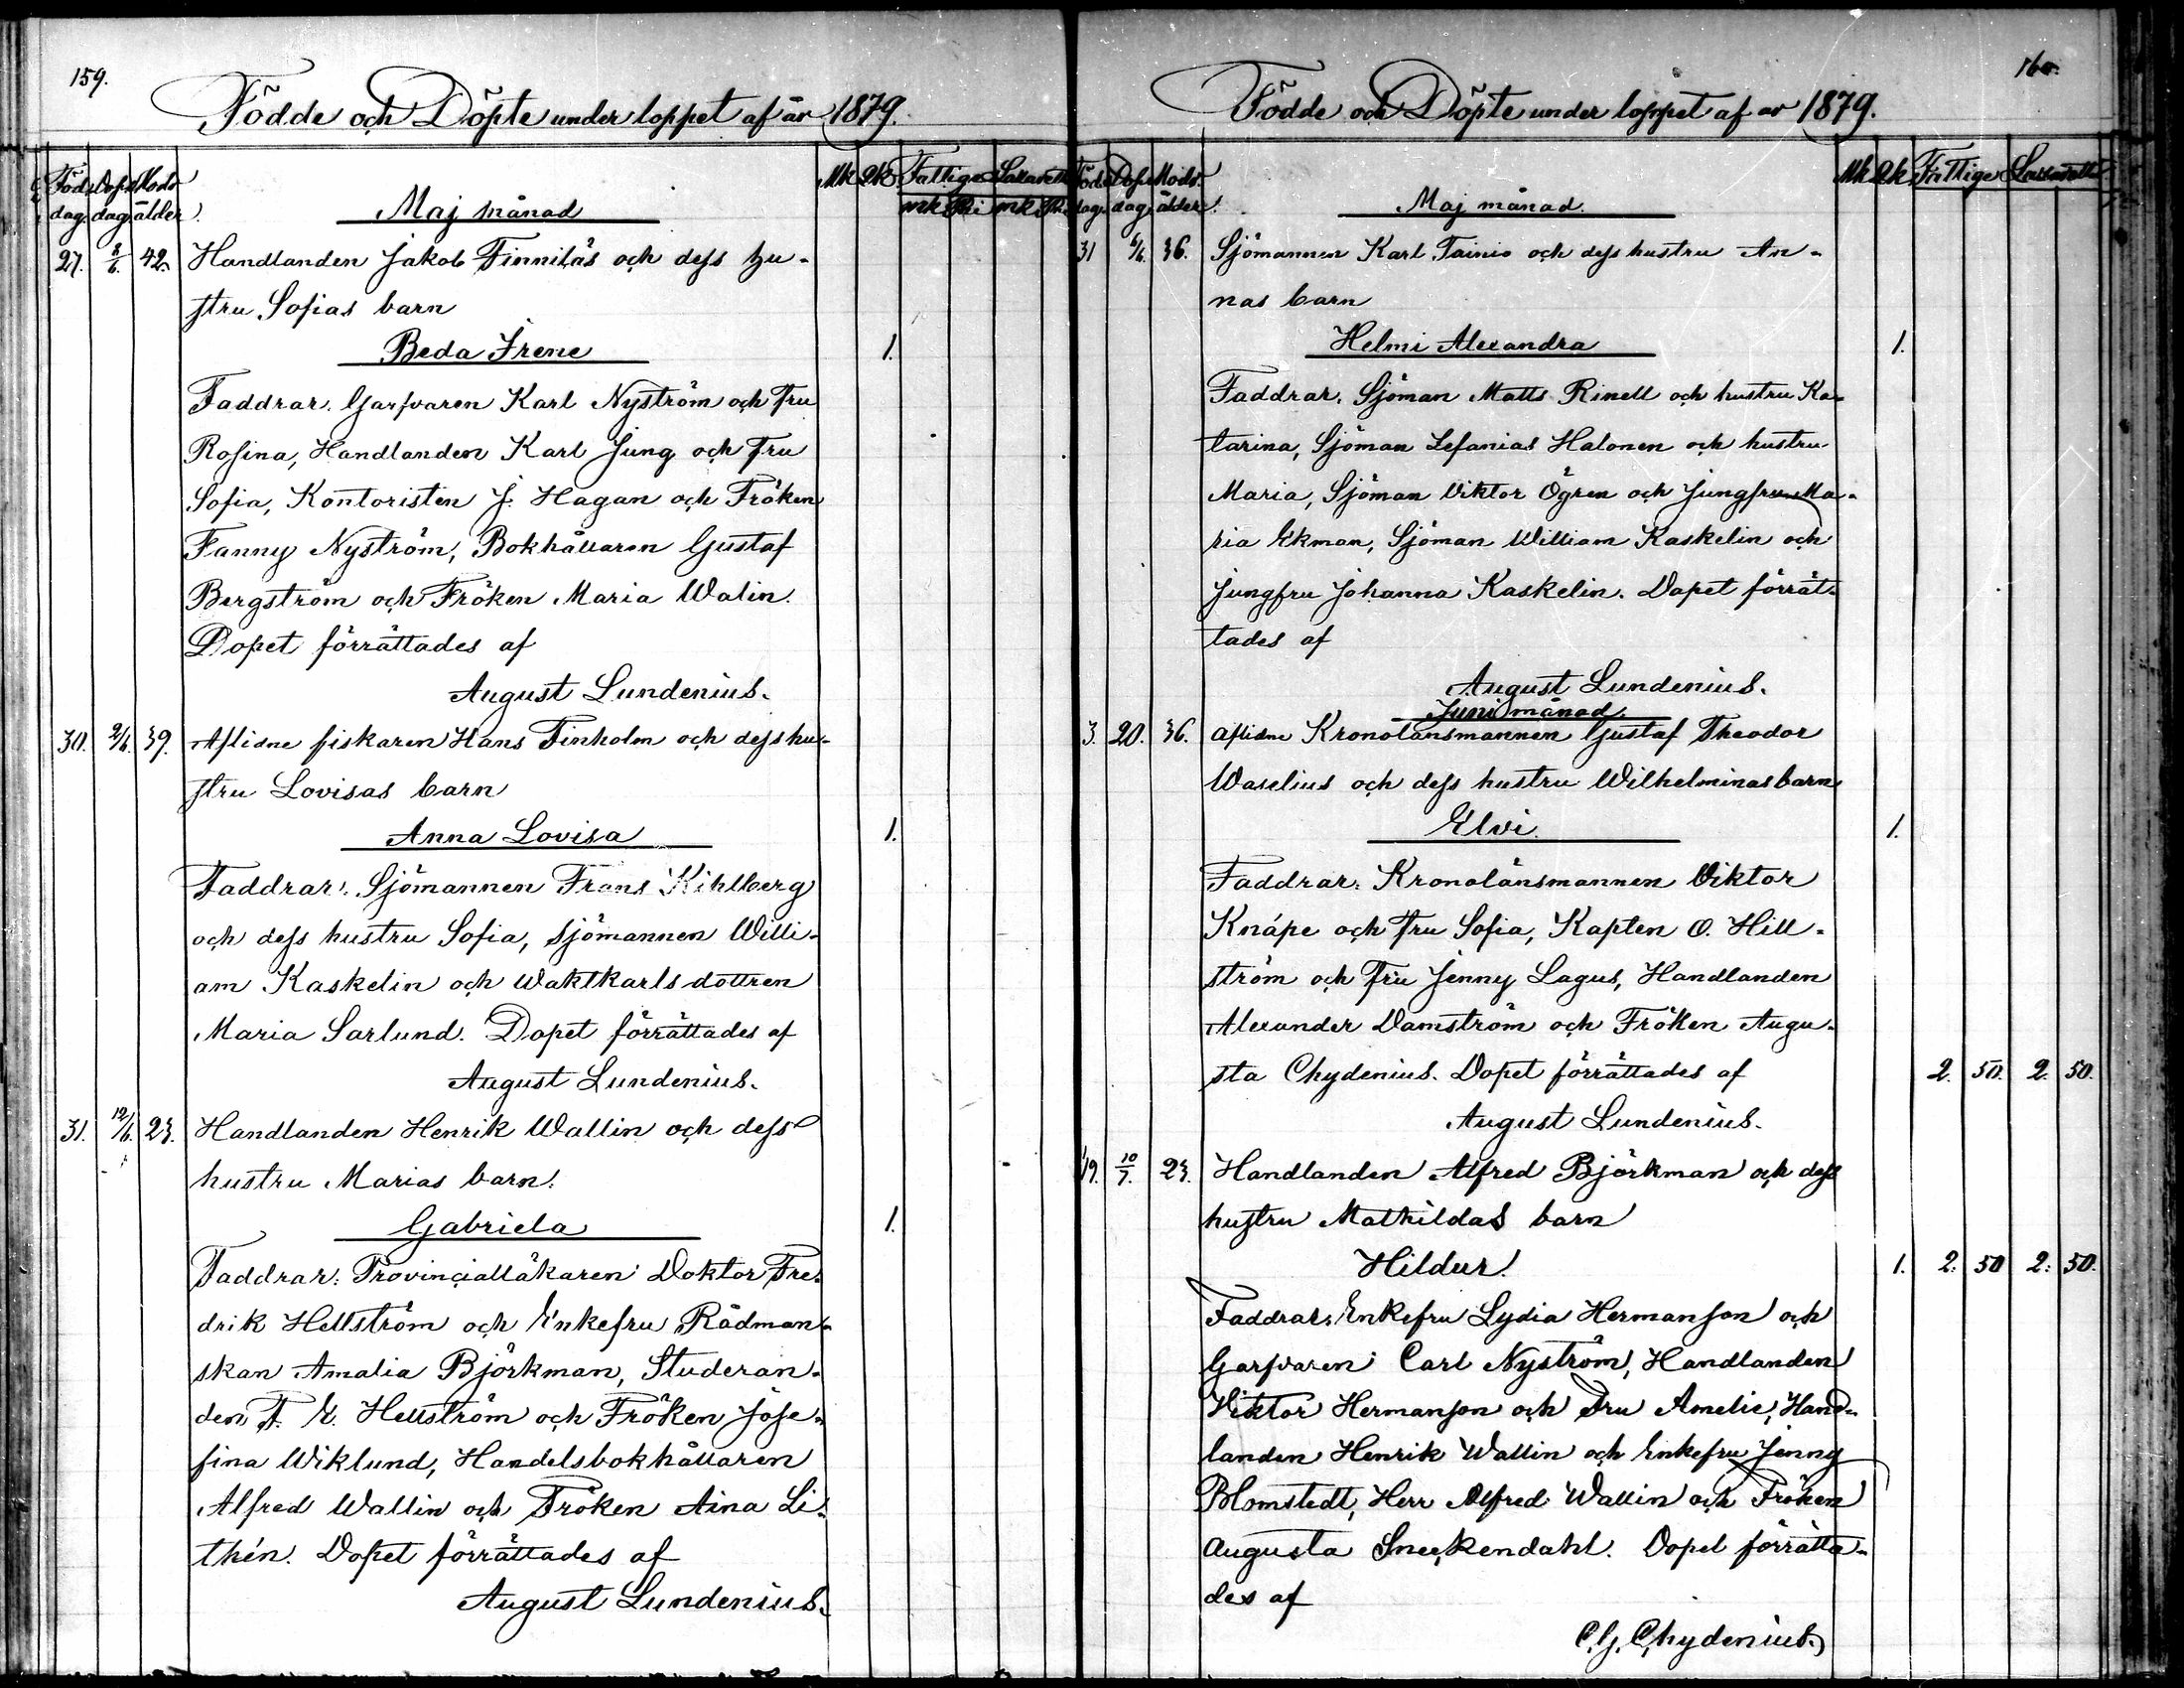 159.
Födde och Döpte under loppet af år 1879.
Föd. dag. Dop. dag Mods ålder. Mk Qk Fattige mk Pi Lassarett mk Pi
Maj månad
27. 8/6. 42. Handlanden Jakob Finniläs och dess hu-
stru Sofias barn
Beda Irene 1.
Faddrar: Garfvaren Karl Nyström och Fru
Rosina, Handlanden Karl Jung och Fru
Sofia, Kontoristen J. Hagan och Fröken
Fanny Nyström, Bokhållaren Gustaf
Bergström och Fröken Maria Walin.
Dopet förrättades af
August Lundenius.
30. 2/6. 39. Aflidne fiskaren Hans Finholm och dess hu-
stru Lovisas barn
Anna Lovisa 1.
Faddrar: Sjömannen Frans Kihlberg
och dess hustru Sofia, Sjömannen Willi-
am Kaskelin och Waktkarlsdottren
Maria Sarlund. Dopet förrättades af
August Lundenius.
31. 12/6. 23. Handlanden Henrik Wallin och dess
hustru Marias barn.
Gabriela 1.
Faddrar: Provincialläkaren Doktor Fre-
drik Hellström och Enkefru Rådman-
skan Amalia Björkman, Studeran-
den F. E. Hellström och Fröken Jose-
fina Wiklund, Handelsbokhållaren
Alfred Wallin och Fröken Aina Li-
thén. Dopet förrättades af
August Lundenius.
160.
Födde och Döpte under loppet af år 1879.
Föd. dag. Dop. dag. Mods. ålder. Mk Qk Fattige Lassarett
Maj månad.
31 6/6. 36. Sjömannen Karl Tainio och dess hustru An-
nas barn
Helmi Alexandra 1.
Faddrar: Sjöman Matts Rinell och hustru Ka-
tarina, Sjöman Sefanias Halonen och hustru
Maria, Sjöman Viktor Ögren och Jungfru Ma-
ria Ekman, Sjöman William Kaskelin och
Jungfru Johanna Kaskelin. Dopet förrät-
tades af
August Lundenius.
Juni månad.
3. 20. 36. Aflidne Kronolänsmannen Gustaf Theodor
Waselius och dess hustru Wilhelminas barn
Elvi. 1.
Faddrar: Kronolänsmannen Viktor
Knape och Fru Sofia, Kapten O. Hell-
ström och Fru Jenny Lagus, Handlanden
Alexander Damström och Fröken Augu-
sta Chydenius. Dopet förrättades af 2. 50. 2. 50.
August Lundenius.
19. 10/7. 23. Handlanden Alfred Björkman och dess
hustru Mathildas barn
Hildur. 1. 2. 50 2. 50.
Faddrar: Enkefru Lydia Hermanson och
Garfvaren Carl Nyström, Handlanden
Viktor Hermanson och Fru Amelie, Hand-
landen Henrik Wallin och Enkefru Jenny
Blomstedt, Herr Alfred Wallin och Fröken
Augusta Sneckendahl. Dopet förrätta-
des af
C. G. Chydenius.